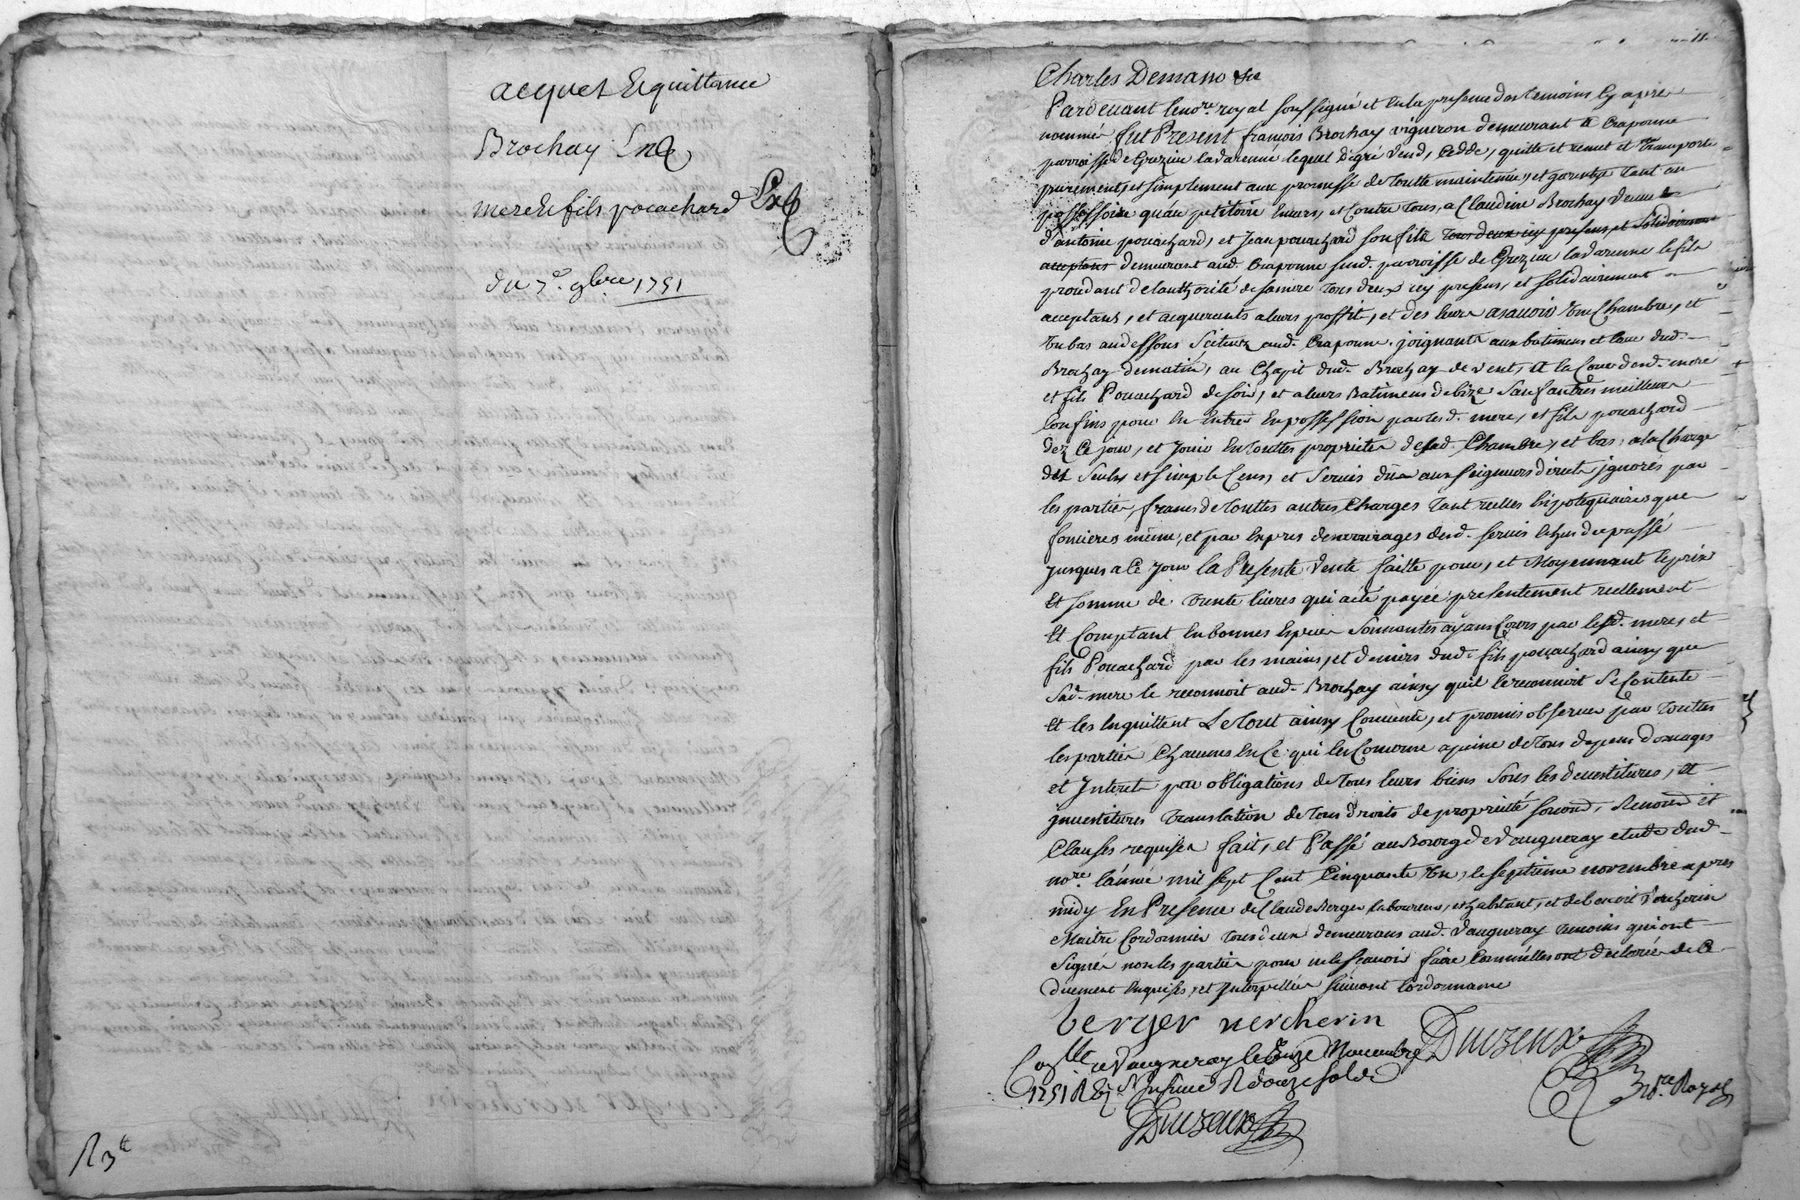 acquet & quittance
Brochay
mere & fils pouachard
du 7e. 9bre 1751
R 3#
11
Charles Demano
Pardevant le no.re royal soussigné et en la presence des temoins cy apres
nommés fut Present francois Brochay vigneron demeurant a Craponne
parroisse de Grezieu la varenne lequel de gré vend, Cedde, quitte et remet et transporte
purement, et simplement aux promesse de toutte maintenüe, et garentye tant au
possessoire qu'au petitoire envers, et Contre tous, a Claudine Brochay veuve
d'antoine pouachard, et Jean pouachard son fils tous deux icy presens et solidairement
acceptans demeurant aud. Craponne susd. parroisse de Grezieu la varenne le fils
procedant de l'authorité de sa mere tous deux icy presens, et solidairement
acceptans, et acquerants a leurs proffit, et des leurs asavoir une Chambre, et
un bas au dessous Scitués aud. Craponne, joignants aux batimens et Cour dud.
Brochay de matin, au Chapit dud. Brochay de vent, a la Cour desd. mere
et fils Pouachard de soir, et a leurs Batimens de bize sauf autres meilleurs
Confins pour en entrer en possession par lesd. mere, et fils pouachard
dez Ce jour, et Jouir en touttes proprietés desd. Chambre, et bas, a la Charge
des seuls et simple Cens, et servis düs aux seigneurs directs ignorés par
les parties, francs de touttes autres Charges tant reelles hipotequaires que
foncieres même, et par expres d'arrerages desd. servis echus du passé
jusques a Ce jour la Presente vente faitte pour, et Moyennant le prix
et somme de trente livres qui a eté payée presentement reellement
et Comptant en bonnes especes sonnantes ayans Cours par lesd. mere, et
fils Pouachard par les mains, et deniers dud. fils pouachard ainsy que
sad. mere le reconnoit aud. Brochay ainsy quil le reconnoit se Contente
et les en quittent Le tout ainsy Convenu, et promis observer par touttes
les parties Chacunes en Ce qui les Concerne a peine de tous depens domages
et Interets par obligations de tous leurs biens sous les devestitures, et
investitures translation de tous droits de proprieté second, Renond et
Clauses requises fait, et Passé au Bourg de vaugneray etude dud.
no.re l'année mil sept Cent Cinquante un, le septieme novembre apres
midy En Presence de Claude Berger laboureur, et habitant, et de benoit vercherin
Maitre Cordonnier tous deux demeurans aud. vaugneray temoins qui ont
signé non les parties pour ne le scavoir faire Comm'elles ont declarée de Ce
düement enquises, et Interpellées suivant l'ordonnance
berger vercherin Duizeux
no.re Royal
Con.lle a vaugneray le onze Novembre
1751 R
Duizeux